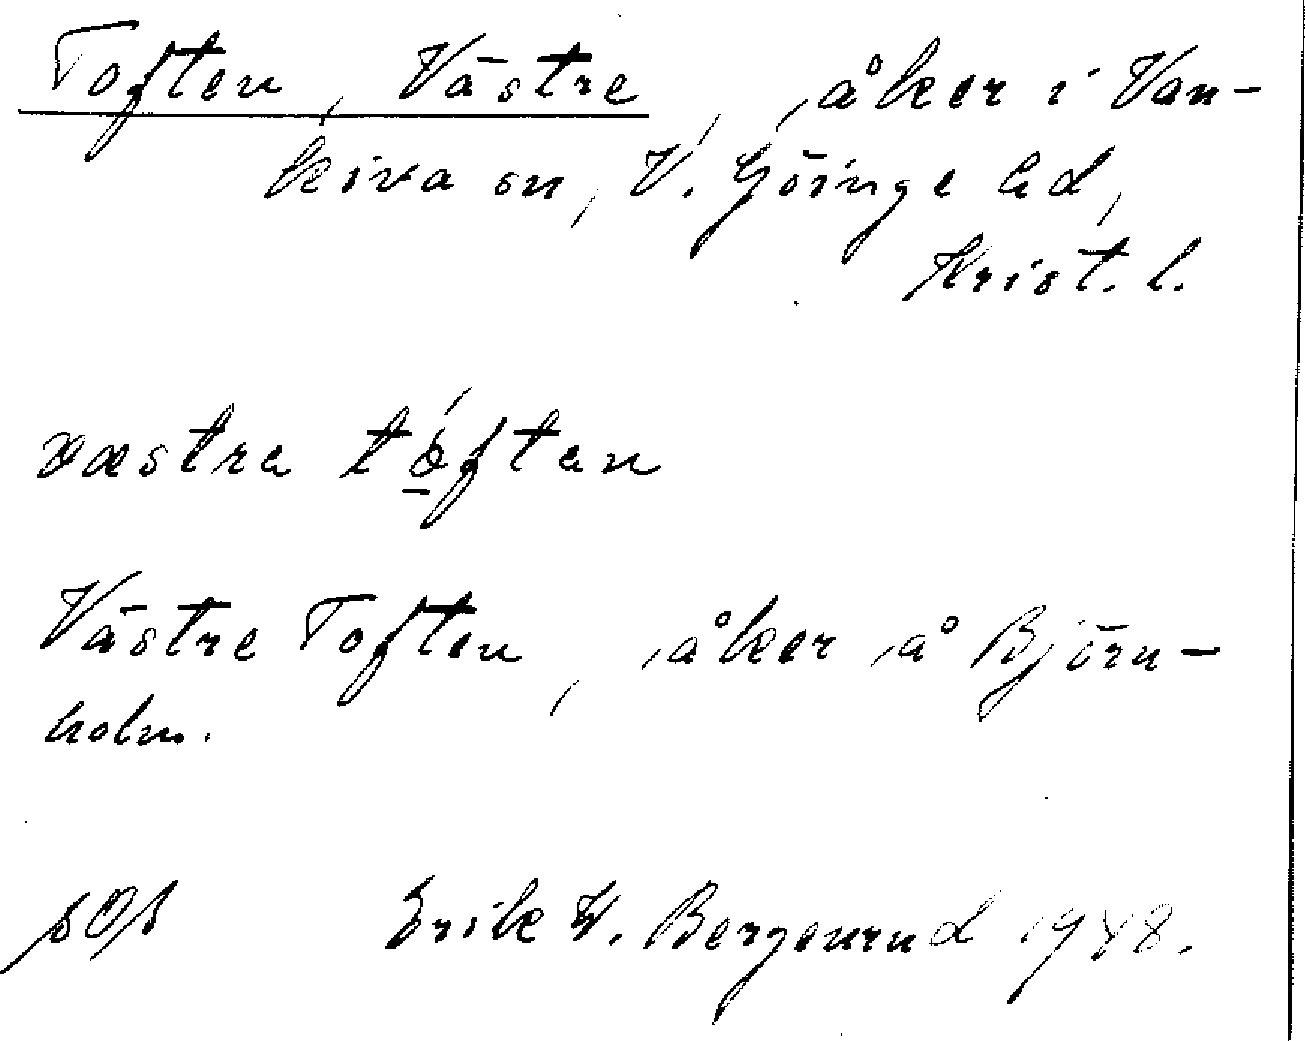 Toften, Västre, åker i Van-
kiva sn, V. Göinge hd,
Krist. l.
væstra tòftan
Västre Toften, åker å Björn-
holm.
Erik W. Bergenrud 1948.